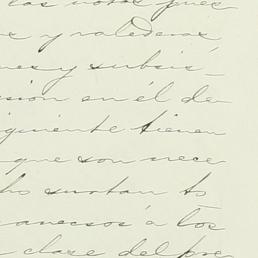 las notas pues
y valederas
y subsis_
sion en él de
iguiente tienen
que son nece
ho surtan to
anexos á los
clase del pre